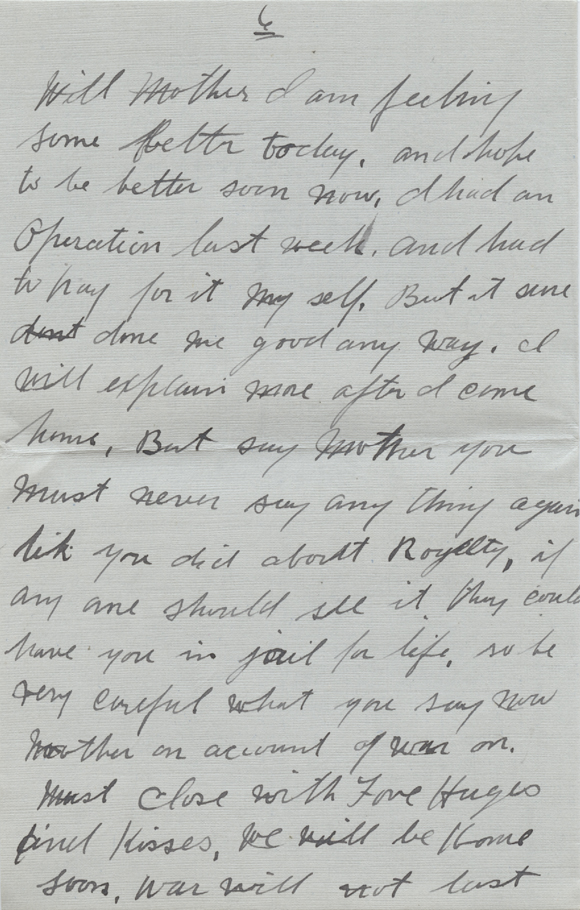 6
Will Mother I am feeling
some better today. and hope
to be better soon now, I had an
Operation last week. and had
to pay for it my self. But it sure
dont done me good any way. I
will explain more after I come
home, But say Mother you
must never say any thing again
lik you did about Royelty, if
any one should see it they could
have you in jail for life, so be
very careful what you say now
Mother on account of war on.
Must close with Love Huges
and Kisses, We will be Home
soon, War will not last